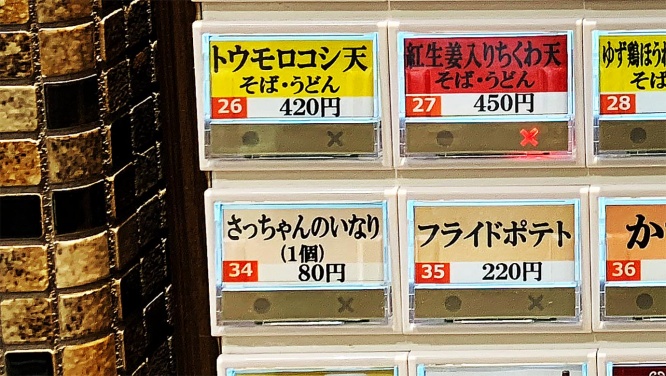 トウモロコシ天
そば・うどん
26 420円
紅生姜入りちくわ天
そば・うどん
27 450円
ゆず鶏ほうれ
そば
28
さっちゃんのいなり
(1個)
34 80円
フライドポテト
35 220円
か
36